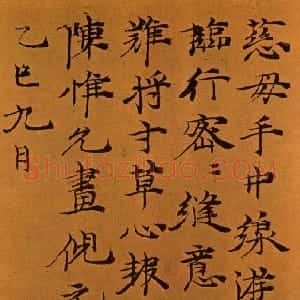 慈母手中線游
臨行密〻縫意
難将寸草心報
陳惟允畫倪元
乙巳九月